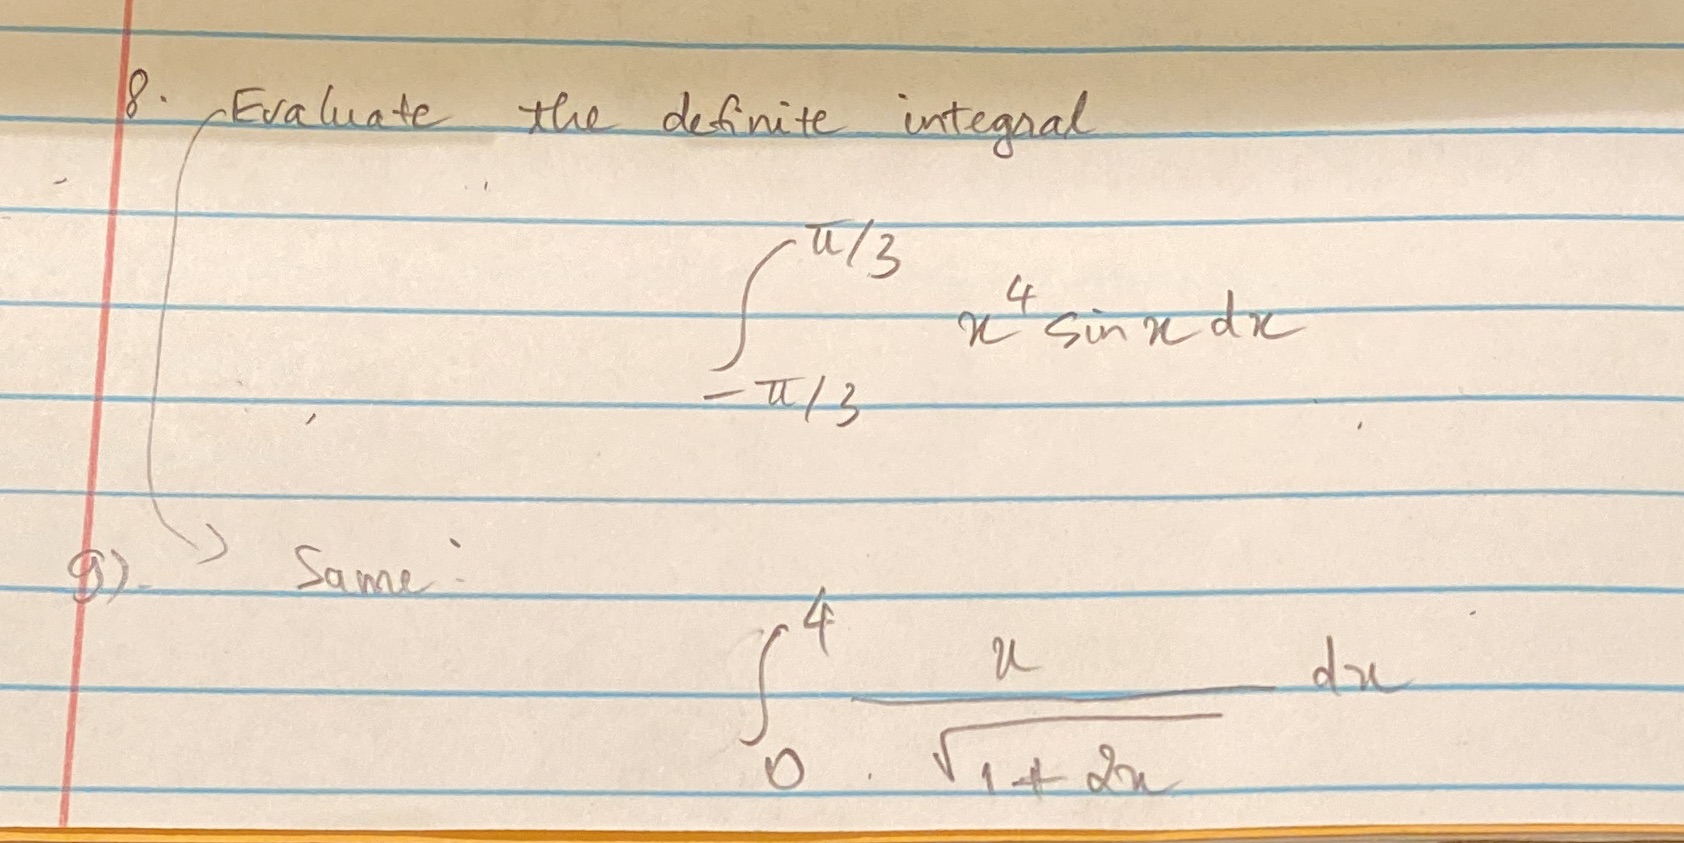 8. Evaluate the definite integral
∫_{-π/3}^{π/3} x^4 sin x dx
9). Same:
∫_0^4 x/√(1+2x) dx